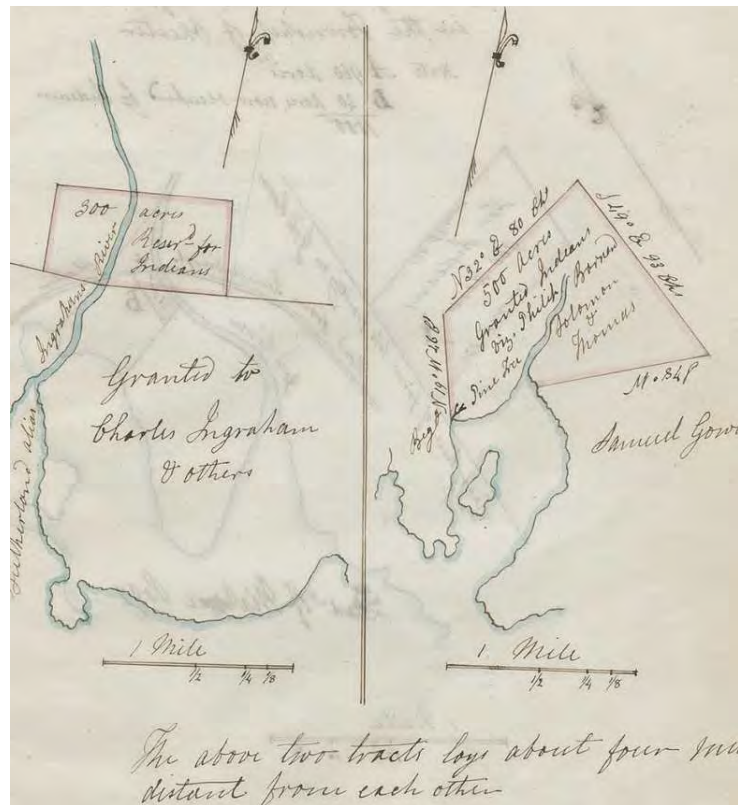 300 acres
Reser.d for
Indians
Ingrahams River
Sutherland alias
Granted to
Charles Ingraham
& others
1 Mile
1/2 1/4 1/8
N 32° E 80 Chs
S 49° E 93 Chs
500 acres
Granted Indians
viz. Philip Bernard
Solomon
&
Thomas
Pine Tree
Began
Samuel Gow
1 Mile
1/2 1/4 1/8
The above two tracts lays about four
distant from each other